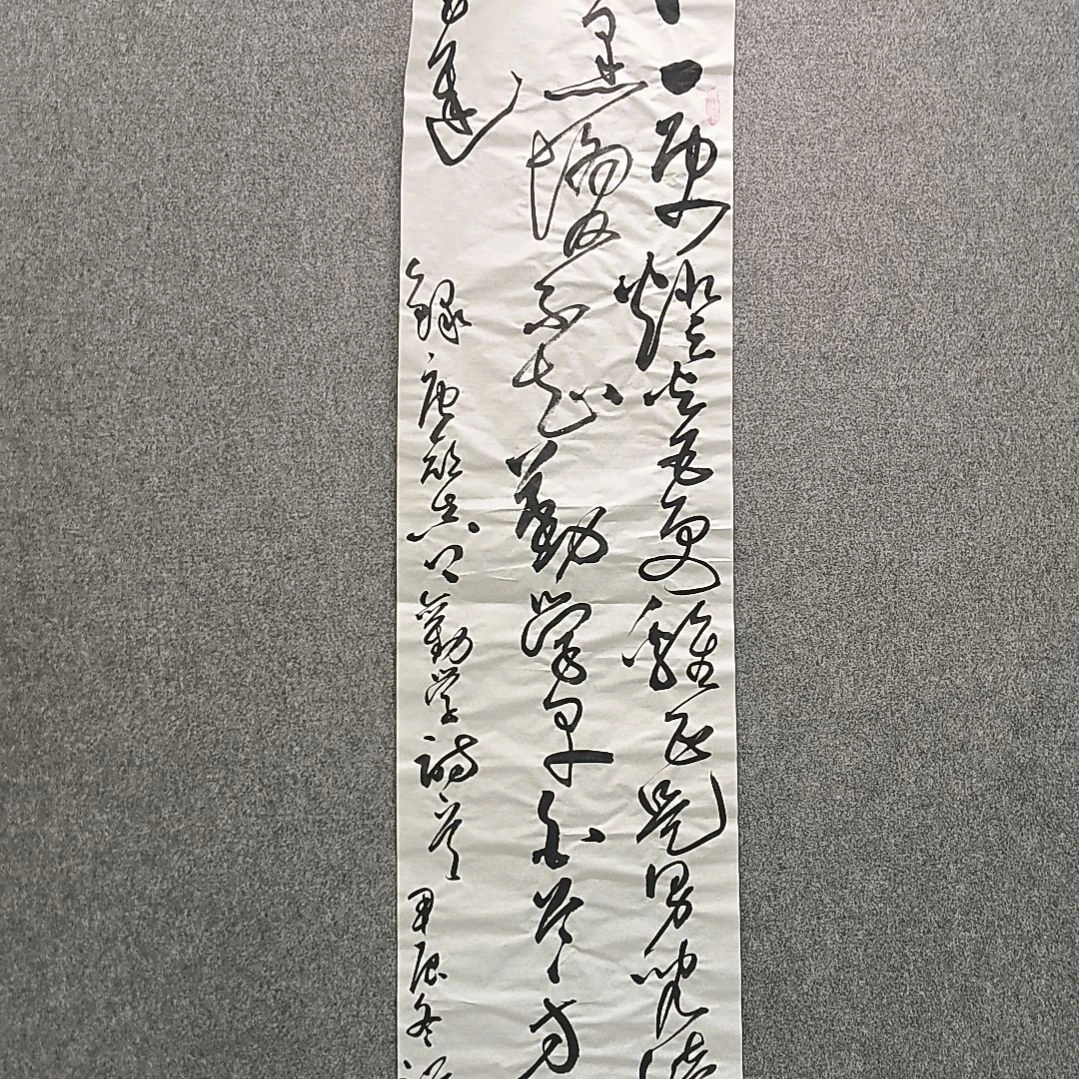 更燈火五更雞正是男兒讀
黑髮不知勤學早白首方
遲
錄唐顏真卿勤学詩一首 甲辰冬